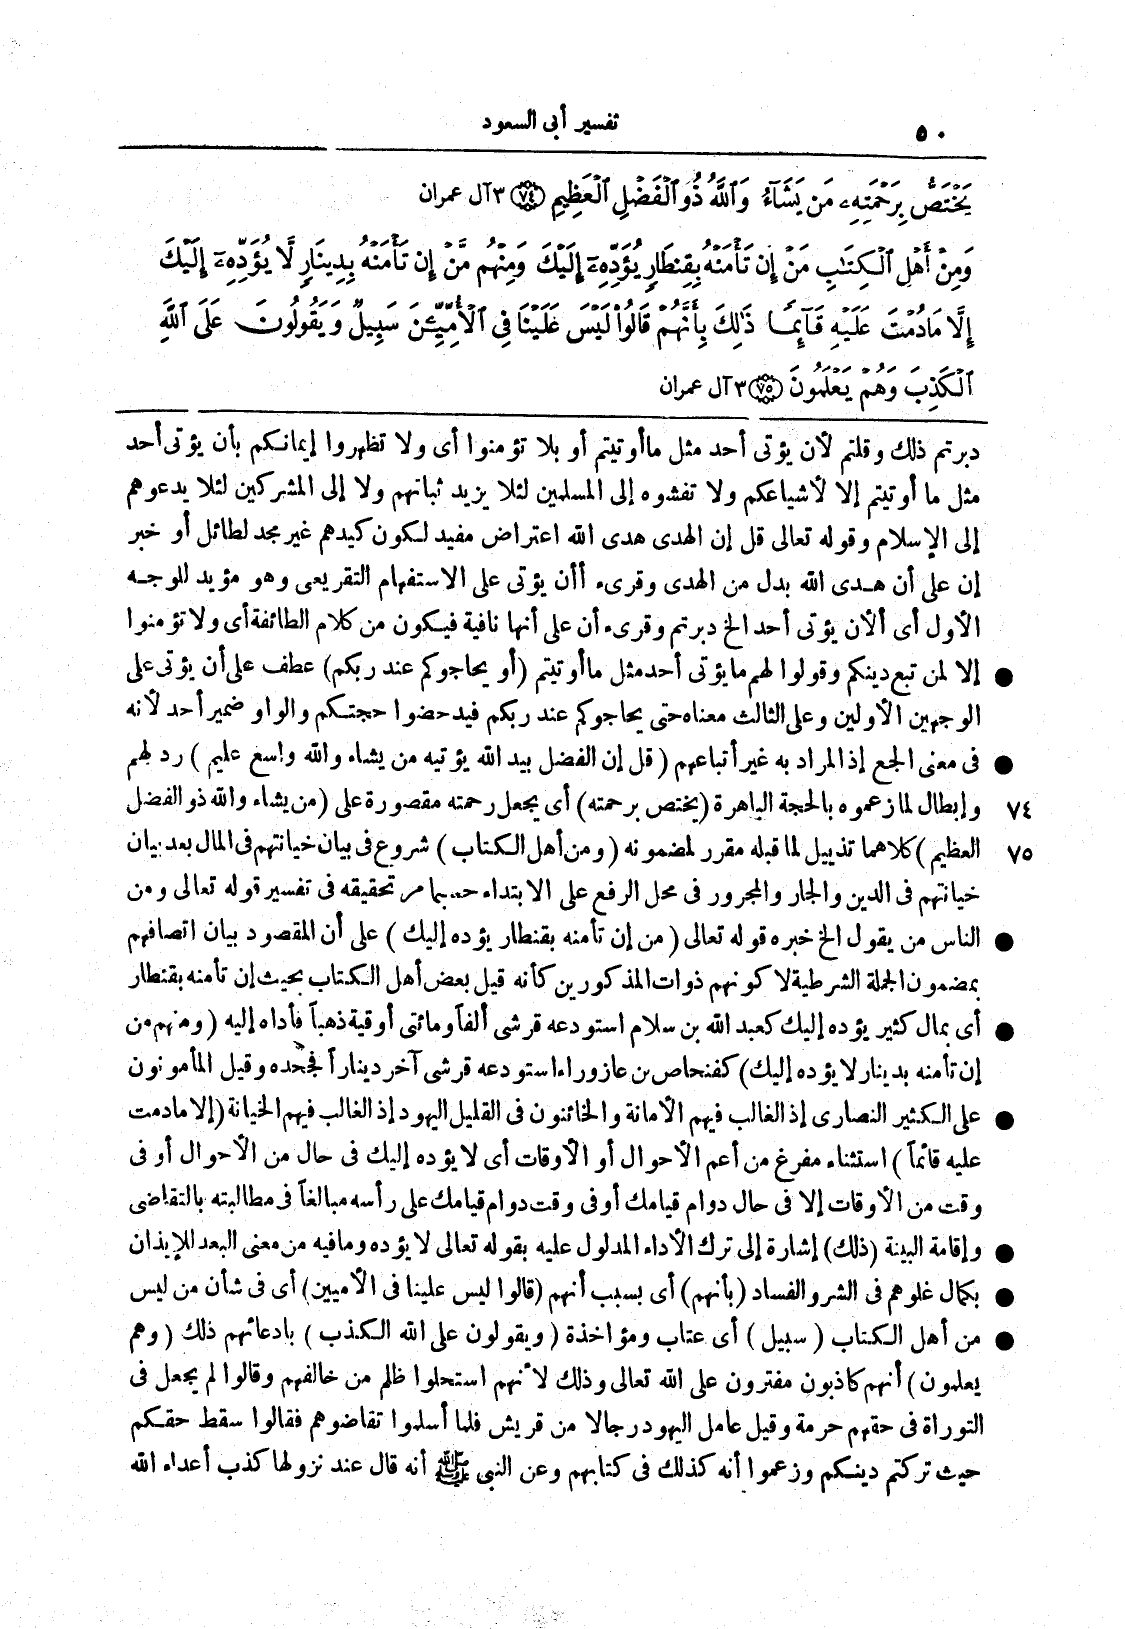 ٥٠
تفسير أبى السعود
يَخْتَصُّ بِرَحْمَتِهِۦ مَن يَشَآءُ وَٱللَّهُ ذُو ٱلْفَضْلِ ٱلْعَظِيمِ ﴿٧٤﴾ ٣ آل عمران
وَمِنْ أَهْلِ ٱلْكِتَٰبِ مَنْ إِن تَأْمَنْهُ بِقِنطَارٍ يُؤَدِّهِۦٓ إِلَيْكَ وَمِنْهُم مَّنْ إِن تَأْمَنْهُ بِدِينَارٍ لَّا يُؤَدِّهِۦٓ إِلَيْكَ
إِلَّا مَادُمْتَ عَلَيْهِ قَآئِمًا ذَٰلِكَ بِأَنَّهُمْ قَالُوا۟ لَيْسَ عَلَيْنَا فِى ٱلْأُمِّيِّـۧنَ سَبِيلٌ وَيَقُولُونَ عَلَى ٱللَّهِ
ٱلْكَذِبَ وَهُمْ يَعْلَمُونَ ﴿٧٥﴾ ٣ آل عمران
دبرتم ذلك وقلتم لأن يؤتى أحد مثل ماأوتيتم أو بلا تؤمنوا أى ولا تظهروا إيمانكم بأن يؤتى أحد
مثل ما أوتيتم إلا لأشياعكم ولا تفشوه إلى المسلمين لئلا يزيد ثباتهم ولا إلى المشركين لئلا يدعوهم
إلى الإسلام وقوله تعالى قل إن الهدى هدى الله اعتراض مفيد لكون كيدهم غير مجد لطائل أو خبر
إن على أن هدى الله بدل من الهدى وقرىء أأن يؤتى على الاستفهام التقريعى وهو مؤيد للوجه
الأول أى ألأن يؤتى أحد الخ دبرتم وقرىء أن على أنها نافية فيكون من كلام الطائفة أى ولا تؤمنوا
● إلا لمن تبع دينكم وقولوا لهم ما يؤتى أحد مثل ماأوتيتم (أو يحاجوكم عند ربكم) عطف على أن يؤتى على
الوجهين الأولين وعلى الثالث معناه حتى يحاجوكم عند ربكم فيدحضوا حجتكم والواو ضمير أحد لأنه
● فى معنى الجمع إذ المراد به غير أتباعهم (قل إن الفضل بيد الله يؤتيه من يشاء والله واسع عليم) رد لهم
٧٤ وإبطال لما زعموه بالحجة الباهرة (يختص برحمته) أى يجعل رحمته مقصورة على (من يشاء والله ذو الفضل
٧٥ العظيم) كلاهما تذييل لما قبله مقرر لمضمونه (ومن أهل الكتاب) شروع فى بيان خيانتهم فى المال بعد بيان
خيانتهم فى الدين والجار والمجرور فى محل الرفع على الابتداء حسبما مر تحقيقه فى تفسير قوله تعالى ومن
● الناس من يقول الخ خبره قوله تعالى (من إن تأمنه بقنطار يؤده إليك) على أن المقصود بيان اتصافهم
بمضمون الجملة الشرطية لا كونهم ذوات المذكورين كأنه قيل بعض أهل الكتاب بحيث إن تأمنه بقنطار
● أى بمال كثير يؤده إليك كعبد الله بن سلام استودعه قرشى ألفاً ومائتى أوقية ذهباً فأداه إليه (ومنهم من
إن تأمنه بدينار لا يؤده إليك) كفنحاص بن عازوراء استودعه قرشى آخر ديناراً فجحده وقيل المأمونون
● على الكثير النصارى إذ الغالب فيهم الأمانة والخائنون فى القليل اليهود إذ الغالب فيهم الخيانة (إلا مادمت
عليه قائماً) استثناء مفرغ من أعم الأحوال أو الأوقات أى لا يؤده إليك فى حال من الأحوال أو فى
وقت من الأوقات إلا فى حال دوام قيامك أو فى وقت دوام قيامك على رأسه مبالغاً فى مطالبته بالتقاضى
● وإقامة البينة (ذلك) إشارة إلى ترك الأداء المدلول عليه بقوله تعالى لا يؤده ومافيه من معنى البعد للإيذان
● بكمال غلوهم فى الشر والفساد (بأنهم) أى بسبب أنهم (قالوا ليس علينا فى الأميين) أى فى شأن من ليس
● من أهل الكتاب (سبيل) أى عتاب ومؤاخذة (ويقولون على الله الكذب) بادعائهم ذلك (وهم
يعلمون) أنهم كاذبون مفترون على الله تعالى وذلك لأنهم استحلوا ظلم من خالفهم وقالوا لم يجعل فى
التوراة فى حقهم حرمة وقيل عامل اليهود رجالا من قريش فلما أسلموا تقاضوهم فقالوا سقط حقكم
حيث تركتم دينكم وزعموا أنه كذلك فى كتابهم وعن النبى ﷺ أنه قال عند نزولها كذب أعداء الله